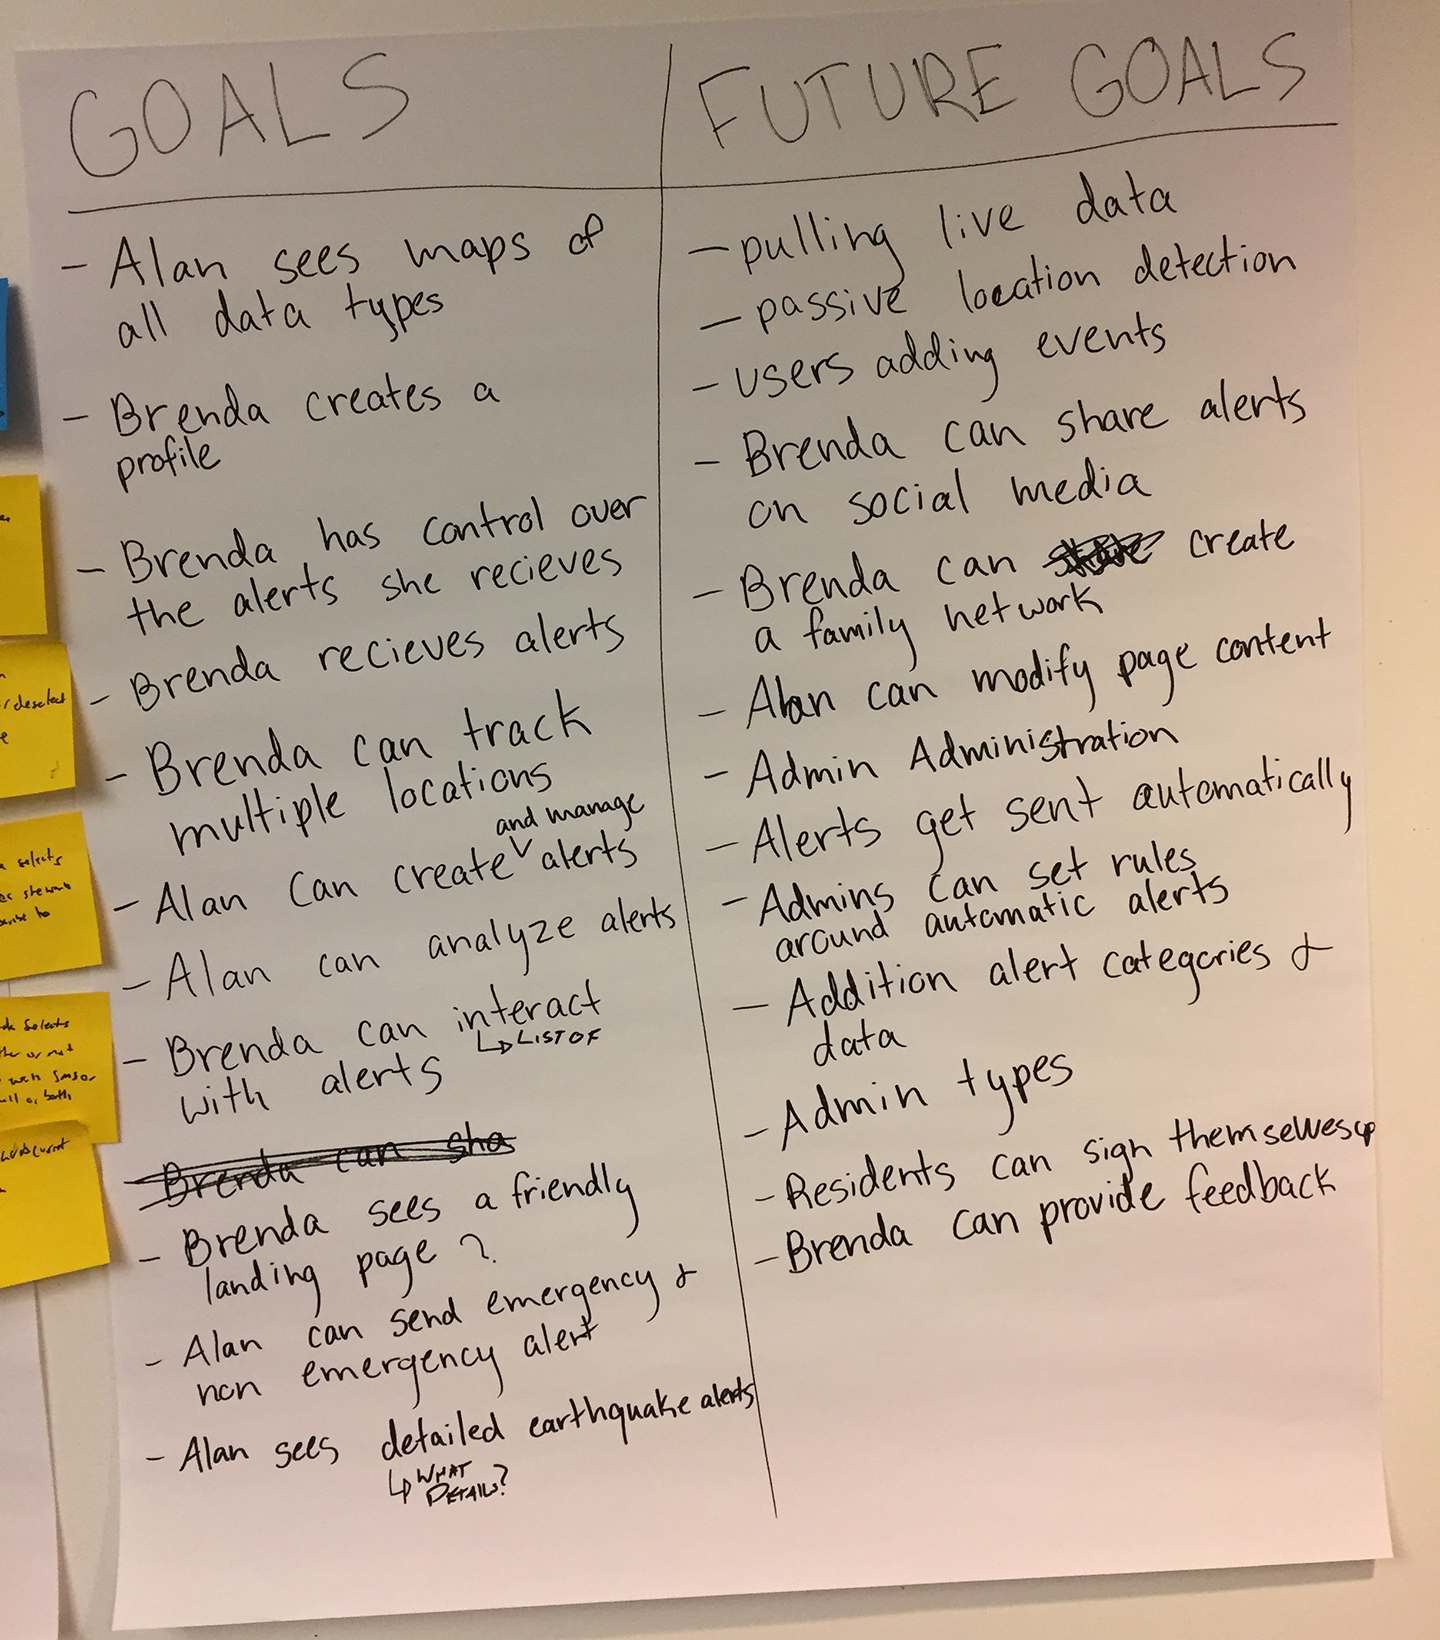 GOALS
- Alan sees maps of
all data types
- Brenda creates a
profile
- Brenda has control over
the alerts she recieves
- Brenda recieves alerts
- Brenda can track
multiple locations
and manage
- Alan can create alerts
- Alan can analyze alerts
- Brenda can interact
↳ LIST OF
with alerts
Brenda can sha
- Brenda sees a friendly
landing page?
- Alan can send emergency &
non emergency alert
- Alan sees detailed earthquake alerts
↳ WHAT
DETAILS?
FUTURE GOALS
- pulling live data
- passive location detection
- users adding events
- Brenda can share alerts
on social media
- Brenda can create
a family network
- Alan can modify page content
- Admin Administration
- Alerts get sent automatically
- Admins can set rules
around automatic alerts
- Addition alert categories &
data
- Admin types
- Residents can sign themselves up
- Brenda can provide feedback
/ deselect
selects
she wants
selects
or not
SMS or
or both